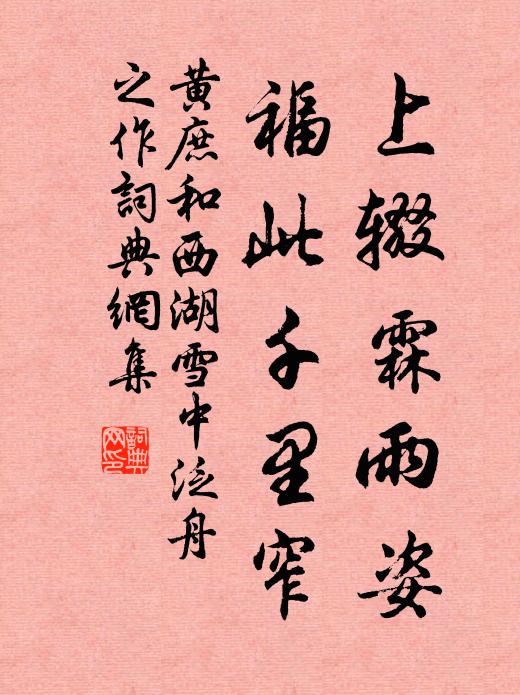 上辍霖雨姿
福此千里窄
黄庶和西湖雪中泛舟
之作詞典網集
詞典
网印